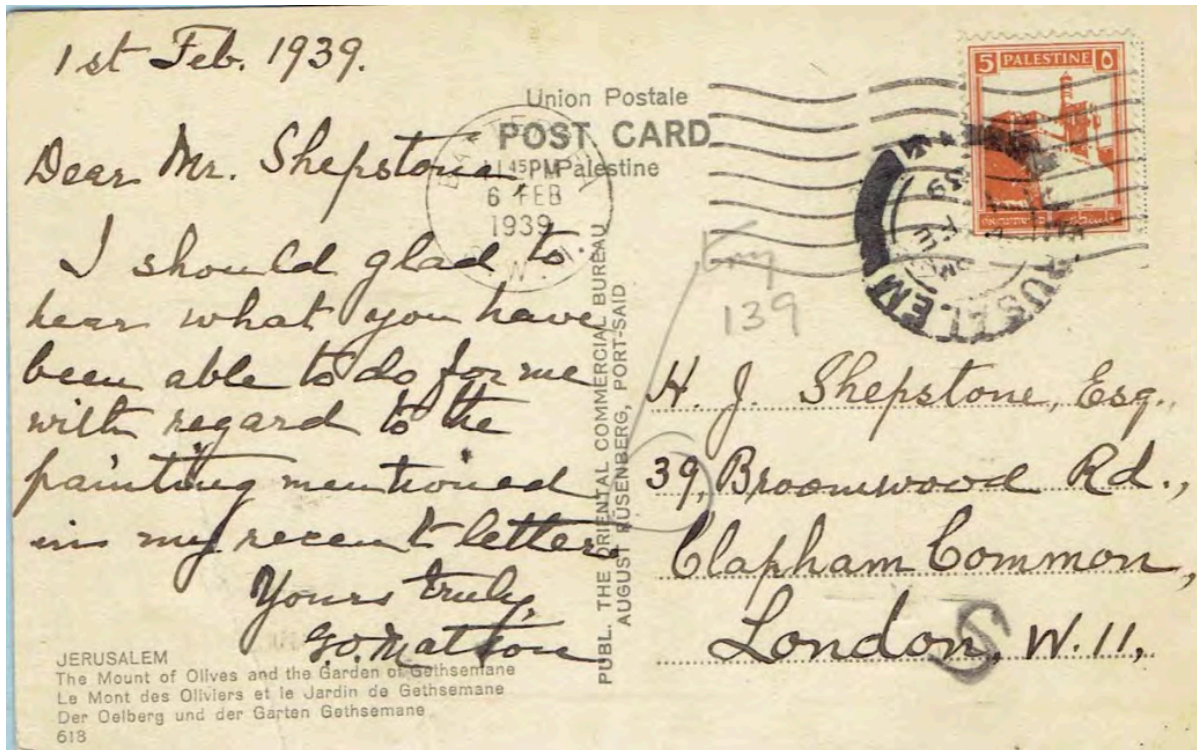 1st Feb. 1939.
Dear Mr. Shepstone
I should glad to
hear what you have
been able to do for me
with regard to the
painting mentioned
in my recent letter.
Yours truly,
G.O. Matson
JERUSALEM
The Mount of Olives and the Garden of Gethsemane
Le Mont des Oliviers et le Jardin de Gethsemane
Der Oelberg und der Garten Gethsemane
613
Union Postale
POST CARD
Palestine
11 45 PM
6 FEB
1939
W. 11.
PUBL. THE ORIENTAL COMMERCIAL BUREAU
AUGUST RÜSENBERG, PORT-SAID
5 PALESTINE ٥
JERUSALEM
139
H. J. Shepstone, Esq.,
39, Broomwood Rd.,
Clapham Common,
London, W. 11,